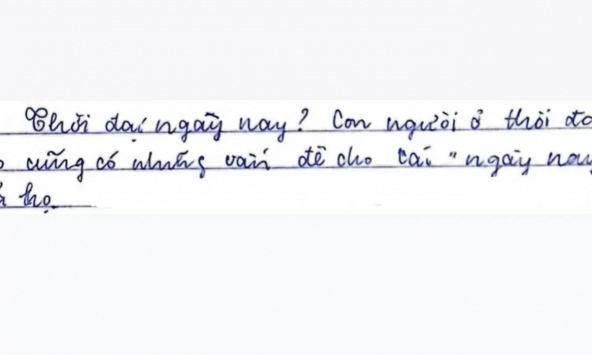 Thời đại ngày nay? Con người ở thời đ
cũng có những vấn đề cho cái "ngày nay
họ.